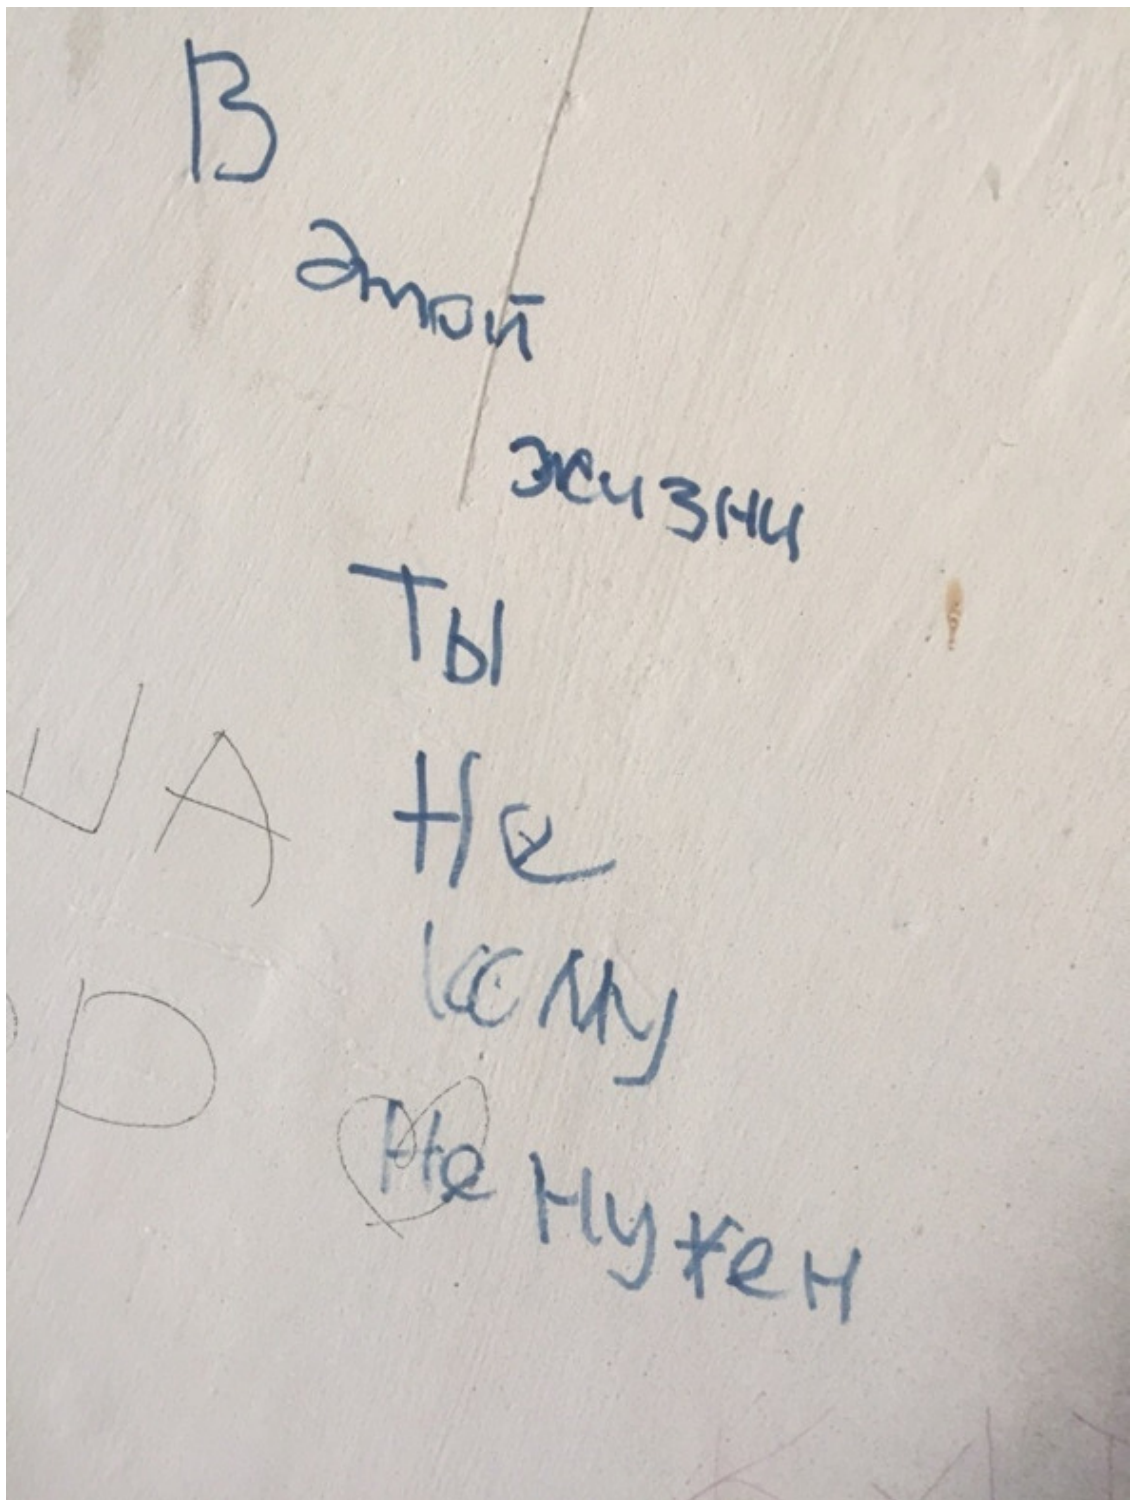 В
этой
жизни
Ты
Не
кому
Не нужен